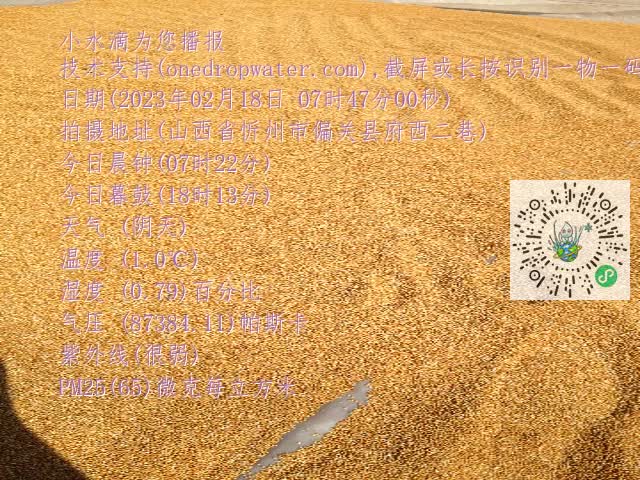 小水滴为您播报
技术支持(onedropwater.com),截屏或长按识别一物一码
日期(2023年02月18日 07时47分00秒)
拍摄地址(山西省忻州市偏关县府西二巷)
今日晨钟(07时22分)
今日暮鼓(18时13分)
天气 (阴天)
温度 (1.0℃)
湿度 (0.79)百分比
气压 (87384.11)帕斯卡
紫外线(很弱)
PM25(65)微克每立方米